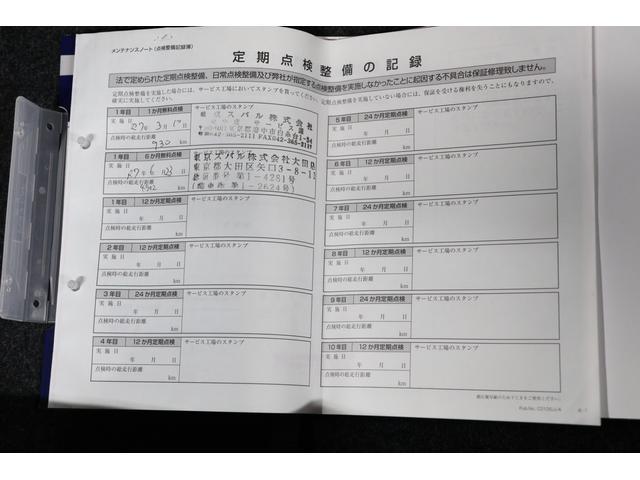 メンテナンスノート(点検整備記録簿)
定期点検整備の記録
法で定められた定期点検整備、日常点検整備及び弊社が指定する点検整備を実施しなかったことに起因する不具合は保証修理致しません。
定期点検整備を実施した場合には、サービス工場においてスタンプを貰ってください。
定期点検整備を実施していない場合には、保証を受ける権利を失うことにもなりますので、
確実に実施してください。
1年目 1か月無料点検 サービス工場のスタンプ
実施日 27年3月17日
点検時の総走行距離 930 km
東京スバル株式会社
サービス課
042-365-2111 FAX042-365-2117
1年目 6か月無料点検 サービス工場のスタンプ
実施日
点検時の総走行距離 km
東京スバル株式会社大田店
東京都大田区矢口3-8-12
第1-4281号
第1-2624号
1年目 12か月定期点検 サービス工場のスタンプ
実施日
年 月 日
点検時の総走行距離 km
2年目 12か月定期点検 サービス工場のスタンプ
実施日
年 月 日
点検時の総走行距離 km
3年目 24か月定期点検 サービス工場のスタンプ
実施日
年 月 日
点検時の総走行距離 km
4年目 12か月定期点検 サービス工場のスタンプ
実施日
年 月 日
点検時の総走行距離 km
5年目 24か月定期点検 サービス工場のスタンプ
実施日
年 月 日
点検時の総走行距離 km
6年目 12か月定期点検 サービス工場のスタンプ
実施日
年 月 日
点検時の総走行距離 km
7年目 24か月定期点検 サービス工場のスタンプ
実施日
年 月 日
点検時の総走行距離 km
8年目 12か月定期点検 サービス工場のスタンプ
実施日
年 月 日
点検時の総走行距離 km
9年目 24か月定期点検 サービス工場のスタンプ
実施日
年 月 日
点検時の総走行距離 km
10年目 12か月定期点検 サービス工場のスタンプ
実施日
年 月 日
点検時の総走行距離 km